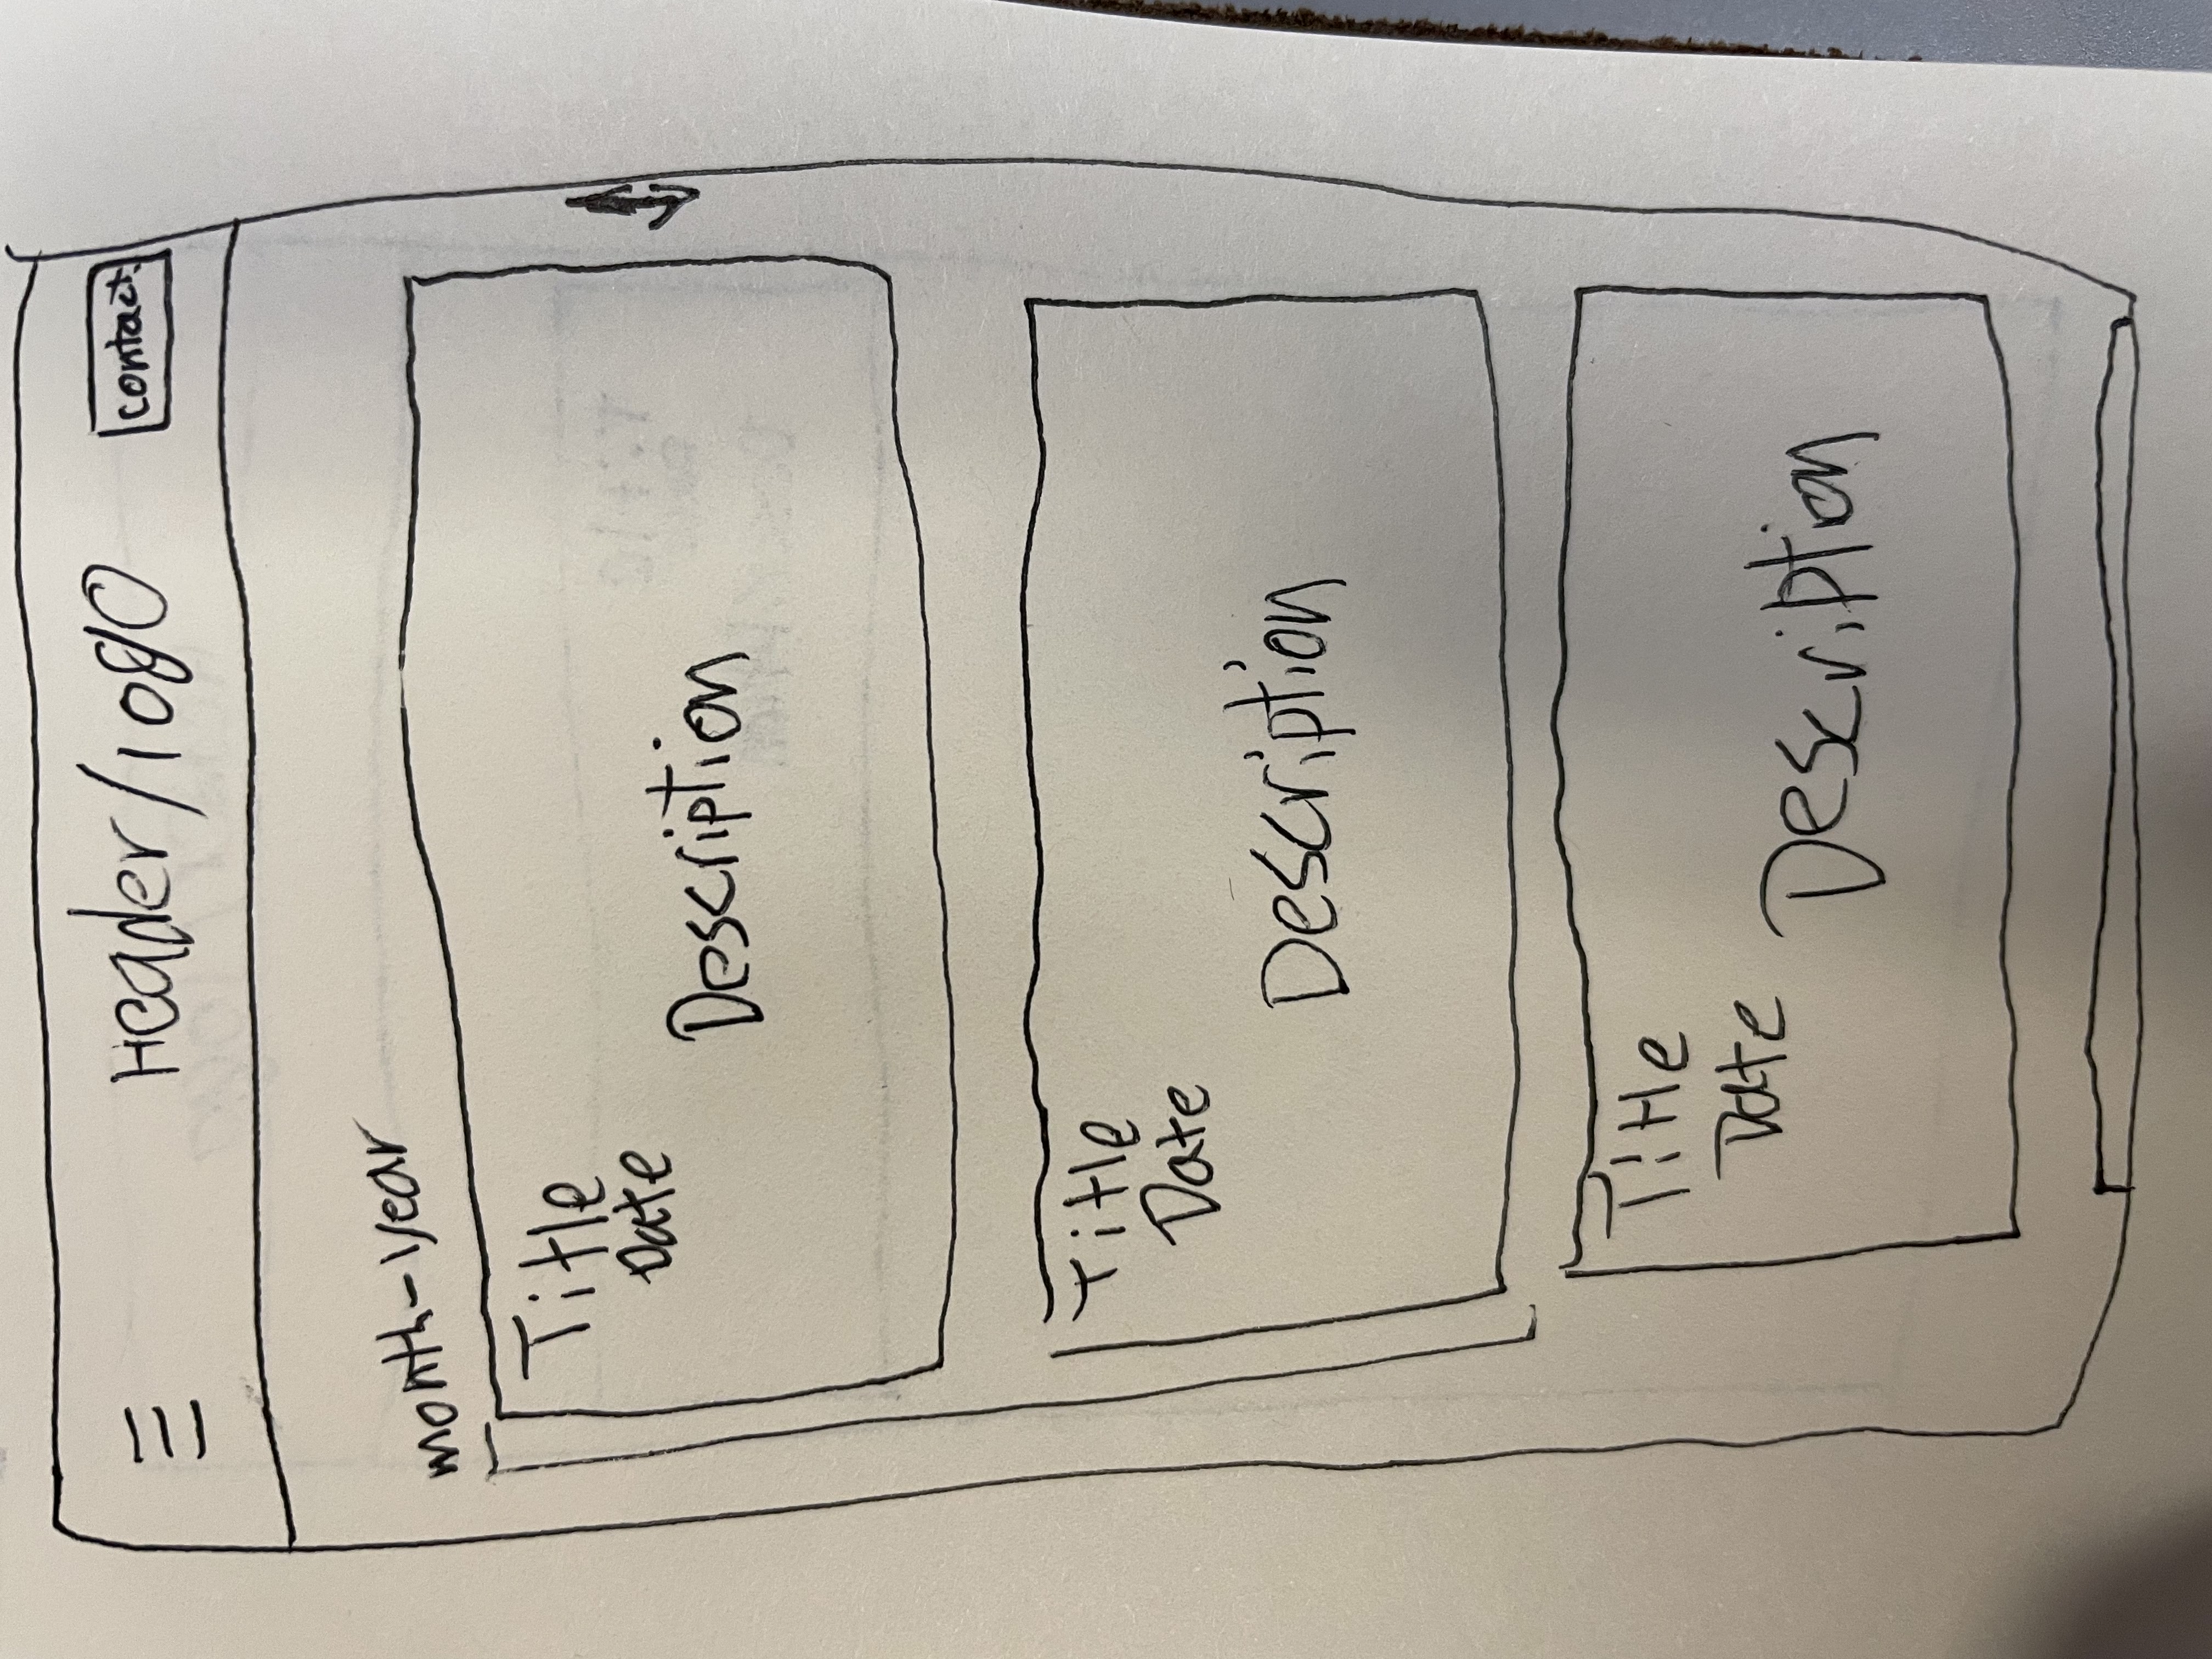 Header/logo
contact
month-year
Title
Date
Description
Title
Date
Description
Title
Date
Description